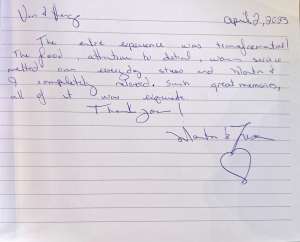 April 2, 2023
The entire experience was transformational
The food, attention to detail, warm service
melted our everyday stress and Martin &
I completely relaxed. Such great memories,
all of it was exquisite.
Thank you!
Martin &